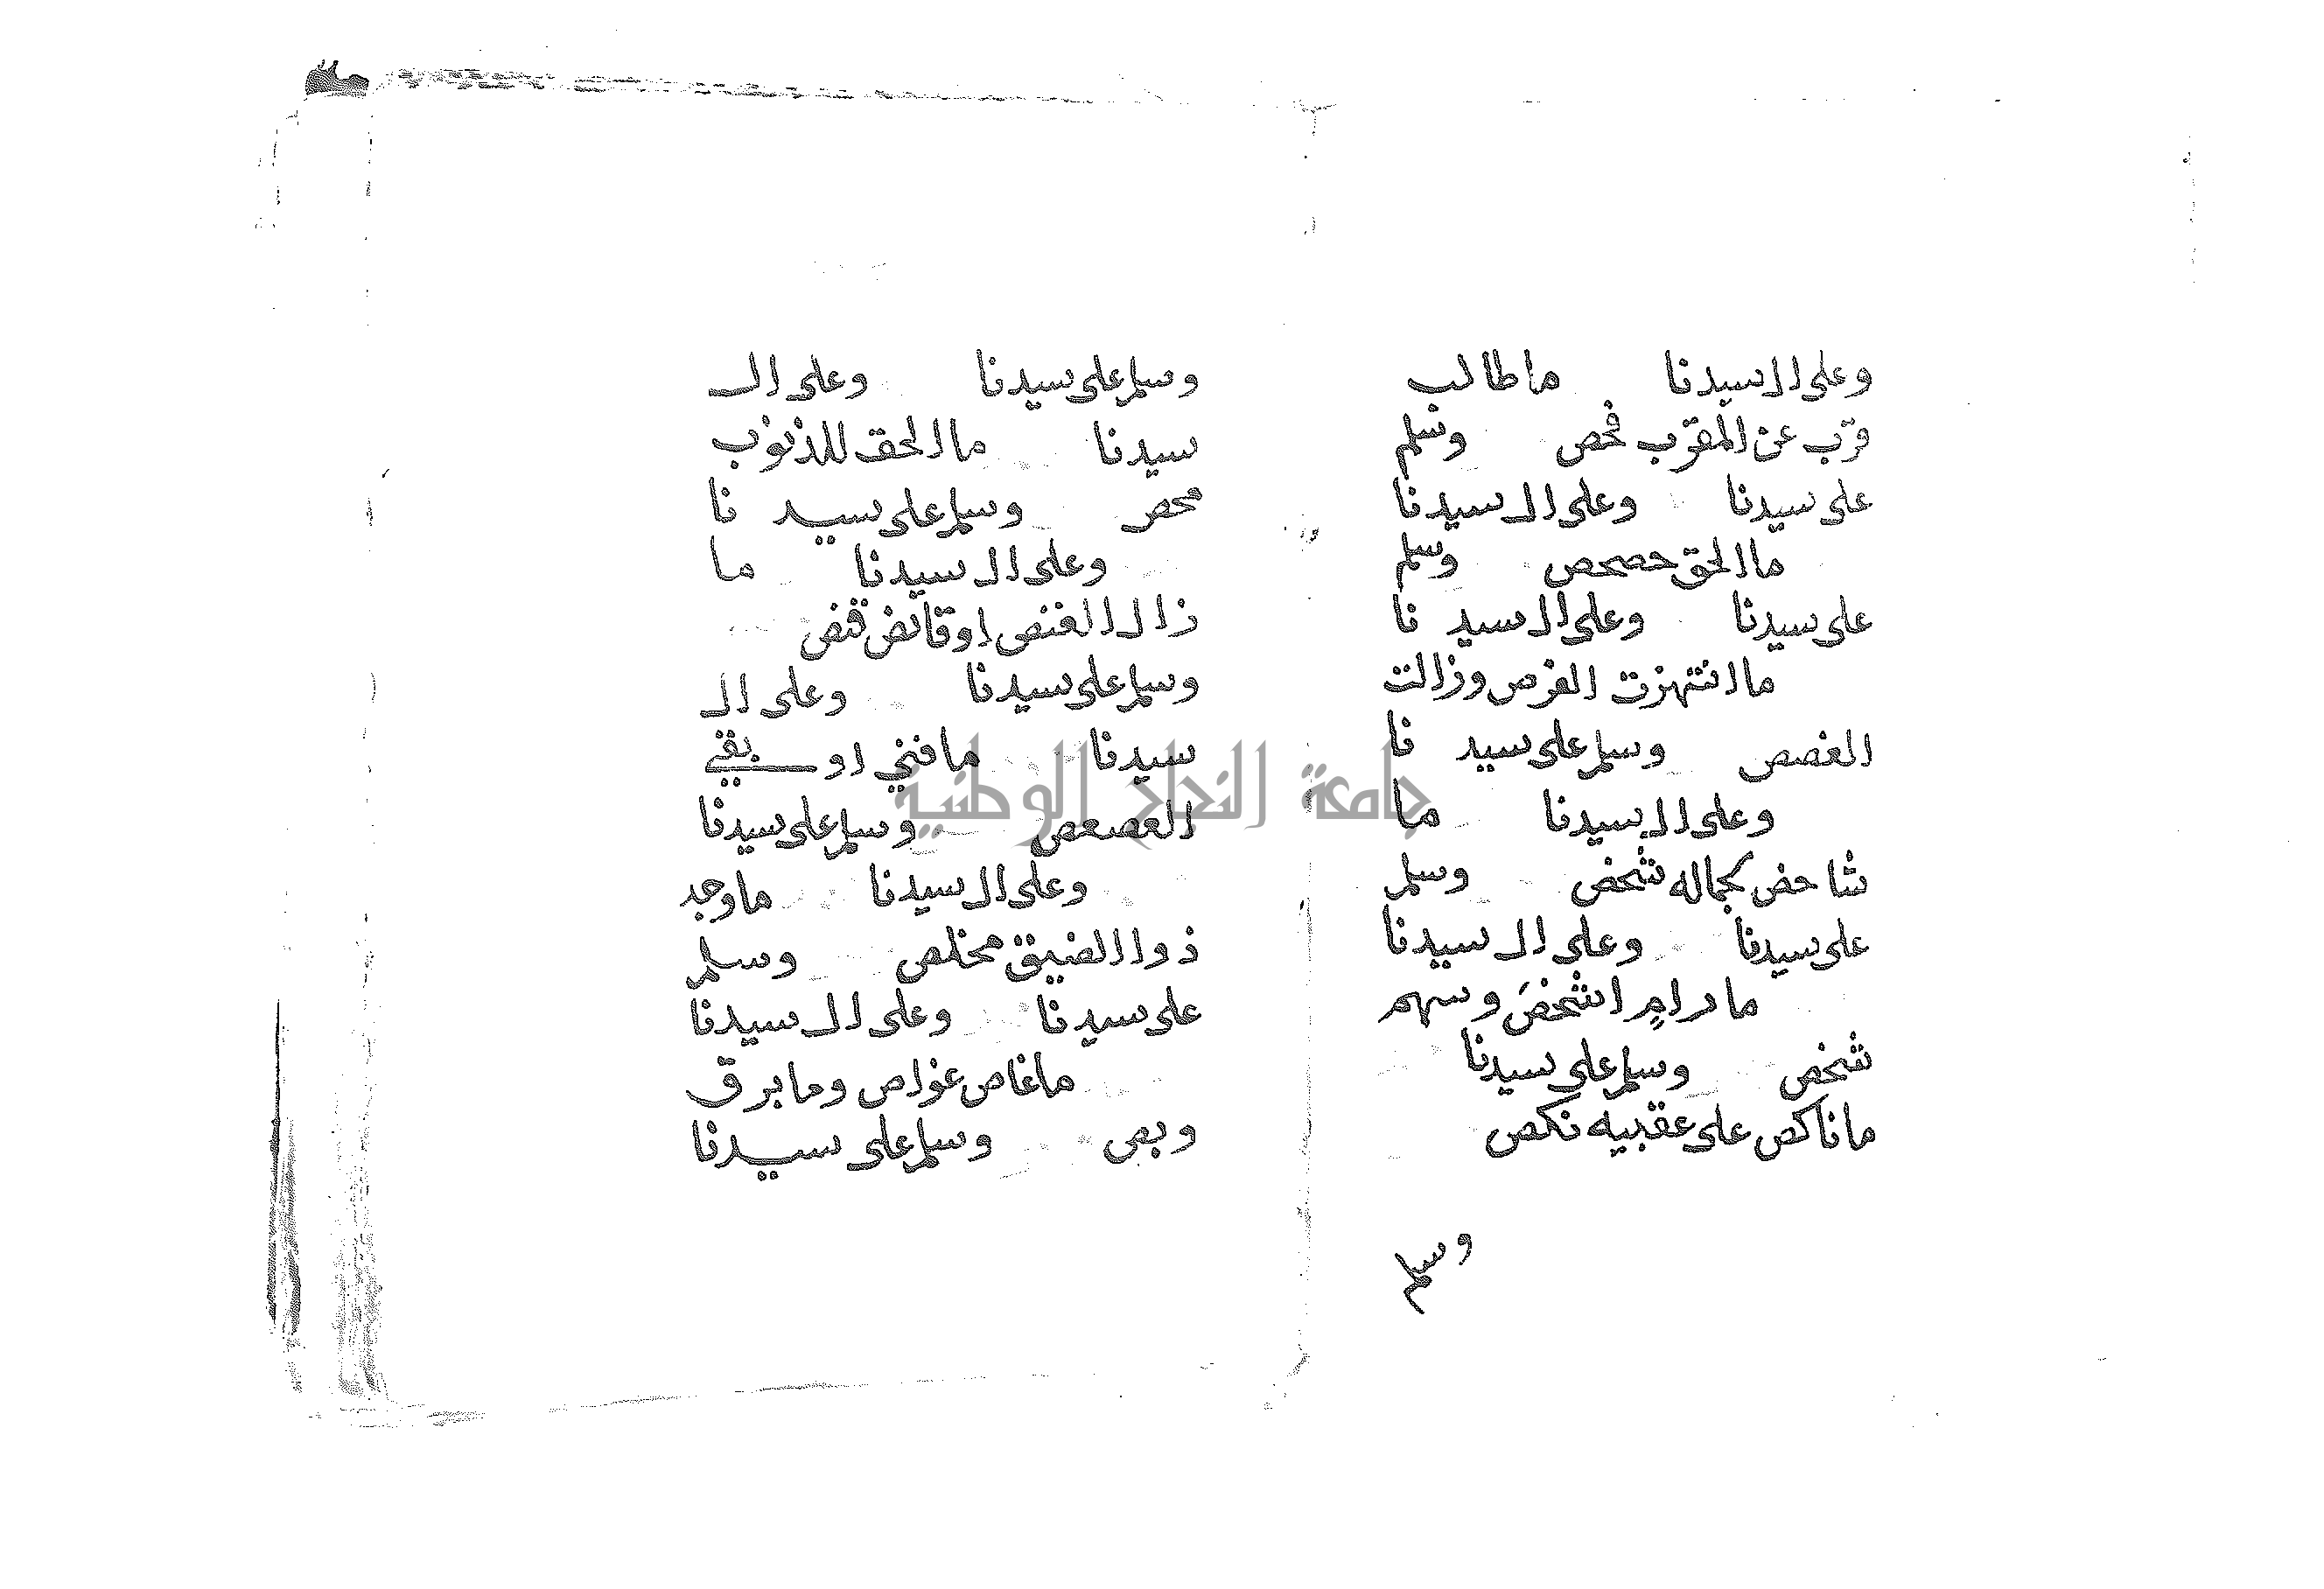 وعلى ال سيدنا ما طالب
قرّب عن المقرّب فحص وسلم
على سيدنا وعلى ال سيدنا
ما الحق حصحص وسلم
على سيدنا وعلى ال سيد نا
ما انتهزت الفرص وزالت
الغصص وسلم على سيد نا
وعلى ال سيدنا ما
شاخص بجماله شخص وسلم
على سيدنا وعلى ال سيدنا
ما رام اشخص وسهم
شخص وسلم على سيدنا
ما ناكص على عقبيه نكص
وسلم
وسلم على سيدنا وعلى ال
سيدنا ما الحق للذنوب
محص وسلم على سيد نا
وعلى ال سيدنا ما
زال القنص او قانص قنص
وسلم على سيدنا وعلى ال
سيدنا ما فني او بقي
العصعص وسلم على سيدنا
وعلى ال سيدنا ما وجد
ذوا الضيق مخلص وسلم
على سيدنا وعلى ال سيدنا
ما غاص غواص وما برق
وبص وسلم على سيدنا
جامعة النجاح الوطنية